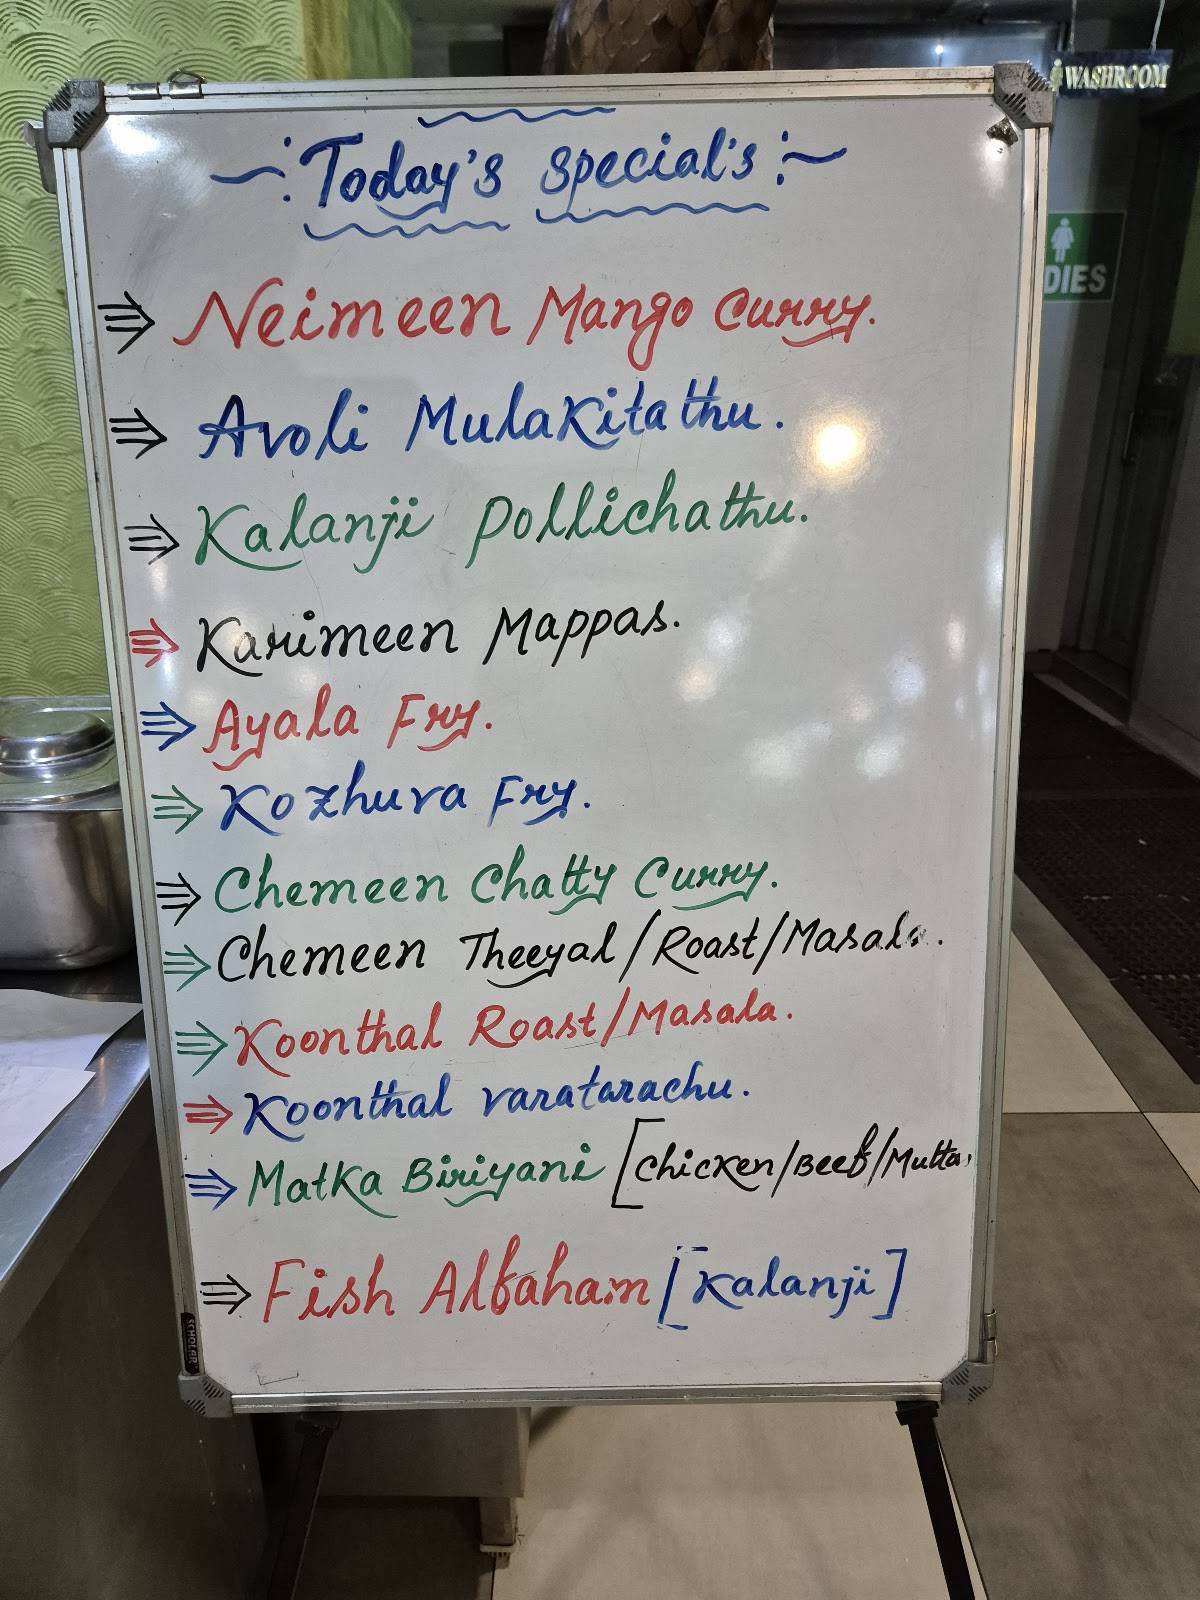 WASHROOM
DIES
~: Today's Special's :~
⇒ Neimeen Mango Curry.
⇒ Avoli Mulakitathu.
⇒ Kalanji Pollichathu.
⇒ Karimeen Mappas.
⇒ Ayala Fry.
⇒ Kozhuva Fry.
⇒ Chemeen Chatty Curry.
⇒ Chemeen Theeyal/Roast/Masala.
⇒ Koonthal Roast/Masala.
⇒ Koonthal varatarachu.
⇒ Matka Biriyani [Chicken/Beef/Mutton
⇒ Fish Alfaham [Kalanji]
SCHOLAR